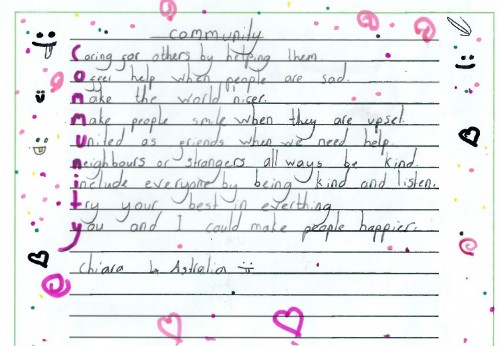 community
Caring for others by helping them.
offer help when people are sad.
make the world nicer.
make people smile when they are upset.
united as friends when we need help.
neighbours or strangers all ways be kind.
include everyone by being kind and listen.
try your best in everthing
you and I could make people happier.
chiara & Astralia